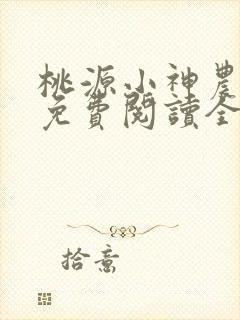 桃源小神農
免費閱讀全
拾意